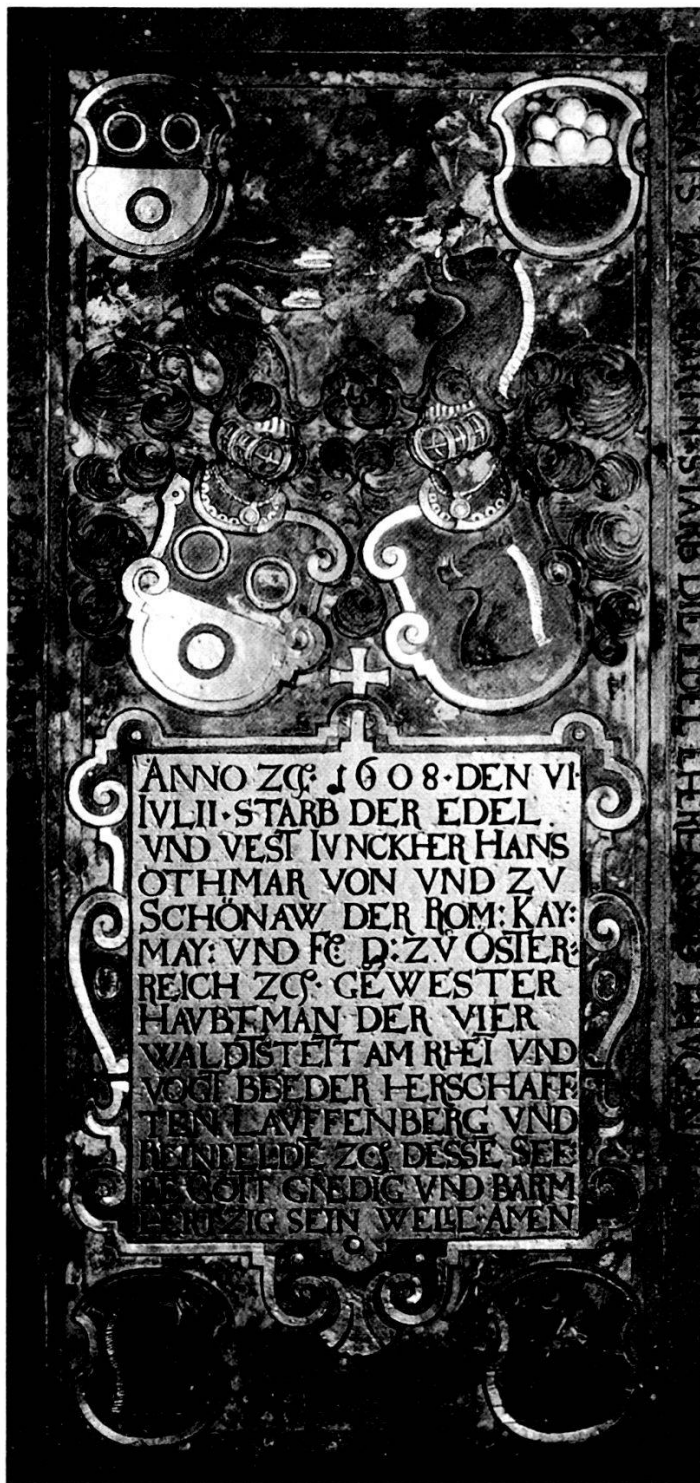 ANNO ZC: 1608·DEN VI·
IVLII·STARB DER EDEL
VND VEST IVNCKHER HANS
OTHMAR VON VND ZV
SCHÖNAW DER ROM: KAY:
MAY: VND FC D: ZV ÖSTER:
REICH ZC· GEWESTER
HAVBTMAN DER VIER
WALDTSTETT AM RHEI VND
VOGT BEEDER HERSCHAFF
TEN LAVFFENBERG VND
REINFELDE ZC DESSE SEE
LE GOTT GNEDIG VND BARM
HERTZIG SEIN WELLE·AMEN
STARB DIE EDEL